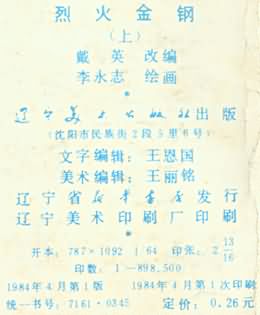 烈火金钢
(上)
戴英 改编
李永志 绘画
*
辽宁美术出版社出版
(沈阳市民族街2段5里6号)
文字编辑：王恩国
美术编辑：王丽铭
辽宁省新华书店发行
辽宁美术印刷厂印刷
*
开本：787×1092 1/64 印张：2 13/16
印数：1—898,500
1984年4月第1版 1984年4月第1次印刷
统一书号：7161·0345 定价：0.26元